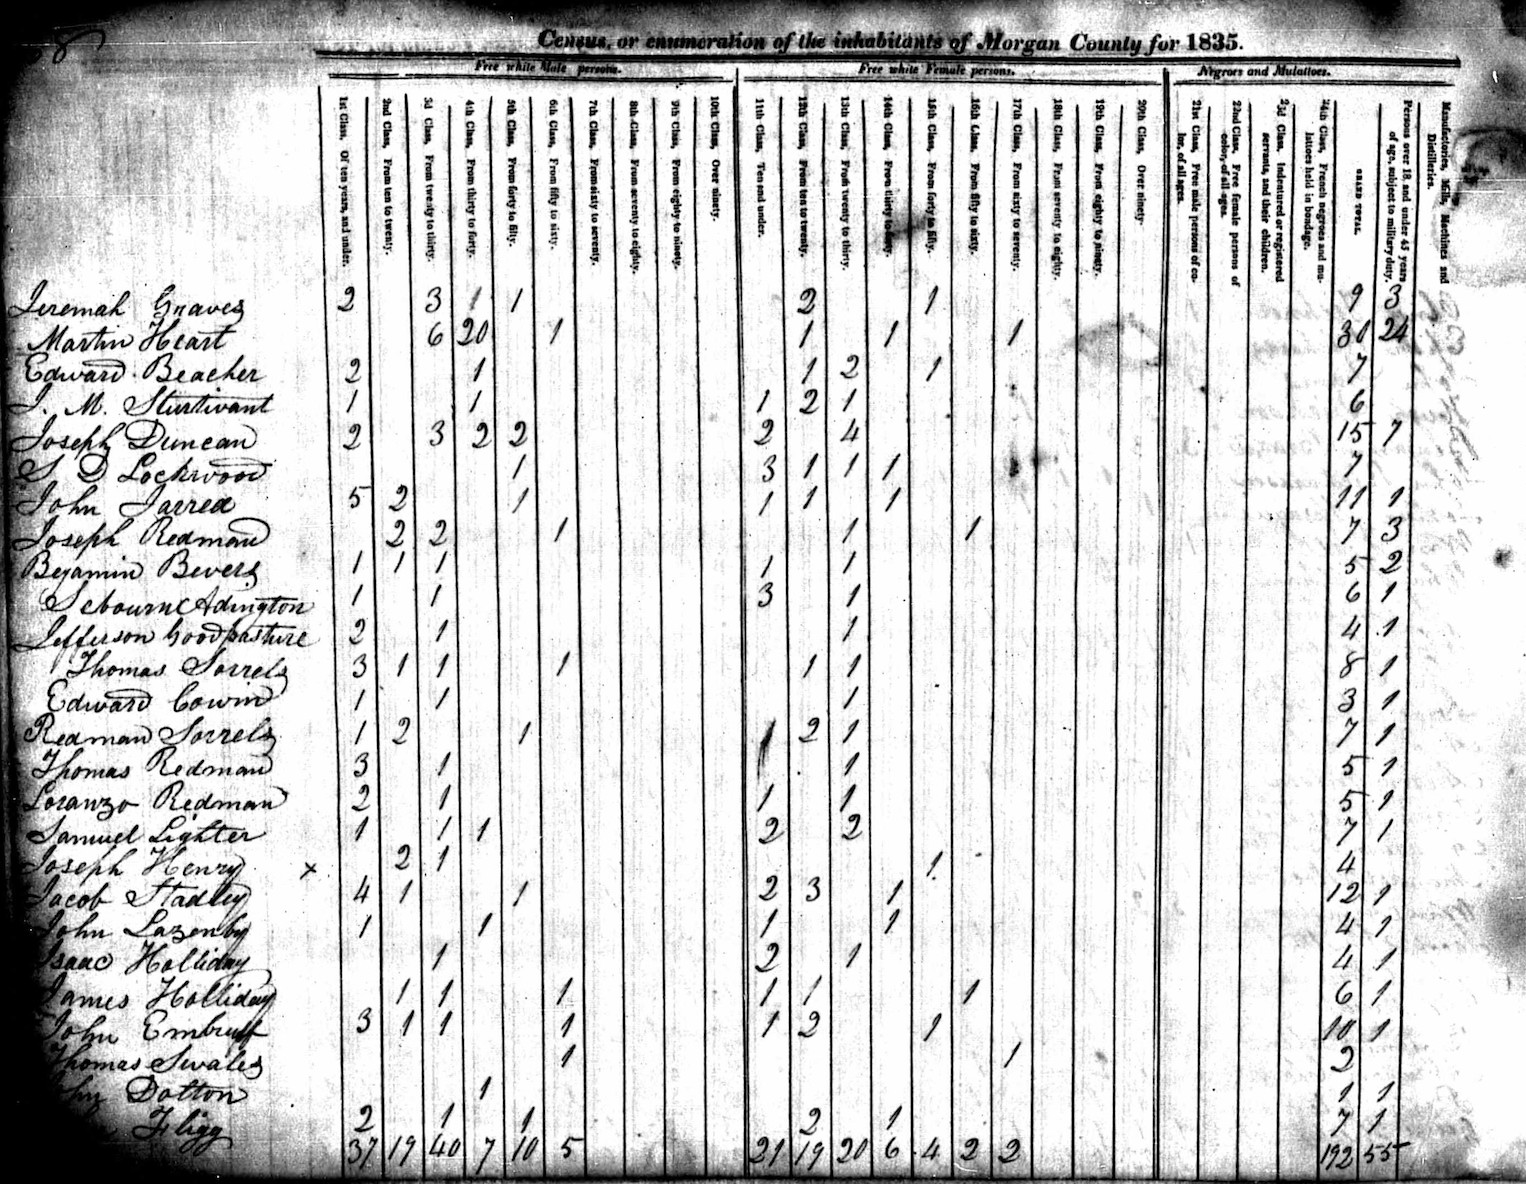 Census, or enumeration of the inhabitants of Morgan County for 1835.
Free white Male persons. Free white Female persons. Negroes and Mulattoes.
1st Class, Of ten years, and under.
2nd Class, From ten to twenty.
3d Class, From twenty to thirty.
4th Class, From thirty to forty.
5th Class, From forty to fifty.
6th Class, From fifty to sixty.
7th Class, From sixty to seventy.
8th Class, From seventy to eighty.
9th Class, From eighty to ninety.
10th Class, Over ninety.
11th Class, Ten and under.
12th Class, From ten to twenty.
13th Class, From twenty to thirty.
14th Class, From thirty to forty.
15th Class, From forty to fifty.
16th Class, From fifty to sixty.
17th Class, From sixty to seventy.
18th Class, From seventy to eighty.
19th Class, From eighty to ninety.
20th Class, Over ninety.
21st Class, Free male persons of co-
lor, of all ages.
22nd Class, Free female persons of
color, of all ages.
23d Class, Indentured or registered
servants, and their children.
24th Class, French negroes and mu-
lattoes held in bondage.
GRAND TOTAL.
Persons over 18 and under 45 years
of age, subject to military duty.
Manufactories, Mills, Machines and
Distilleries.
Jeremah Graves 2 3 1 1 2 1 9 3
Martin Heart 6 20 1 1 1 1 30 24
Edward Beacher 2 1 1 2 1 7
J. M. Sturtivant 1 1 1 2 1 6
Joseph Duncan 2 3 2 2 2 4 15 7
S D Lockwood 1 3 1 1 1 7
John Jarred 5 2 1 1 1 1 11 1
Joseph Redman 2 2 1 1 1 7 3
Bejamin Bevers 1 1 1 1 1 5 2
Sebourn Adington 1 1 3 1 6 1
Jefferson Goodpasture 2 1 1 4 1
Thomas Sorrels 3 1 1 1 1 1 8 1
Edward Cowin 1 1 1 3 1
Redman Sorrels 1 2 1 1 2 1 7 1
Thomas Redman 3 1 1 5 1
Loranzo Redman 2 1 1 1 5 1
Samuel Lighter 1 1 1 2 2 7 1
Joseph Henry x 2 1 1 4
Jacob Stadley 4 1 1 2 3 1 12 1
John Lazenby 1 1 1 1 4 1
Isaac Holliday 1 2 1 4 1
James Holliday 1 1 1 1 1 1 6 1
John 3 1 1 1 1 2 1 10 1
Thomas Swales 1 1 2
Dolton 1 1 1
Fligg 2 1 1 2 1 7 1
37 19 40 7 10 5 21 19 20 6 4 2 2 192 55